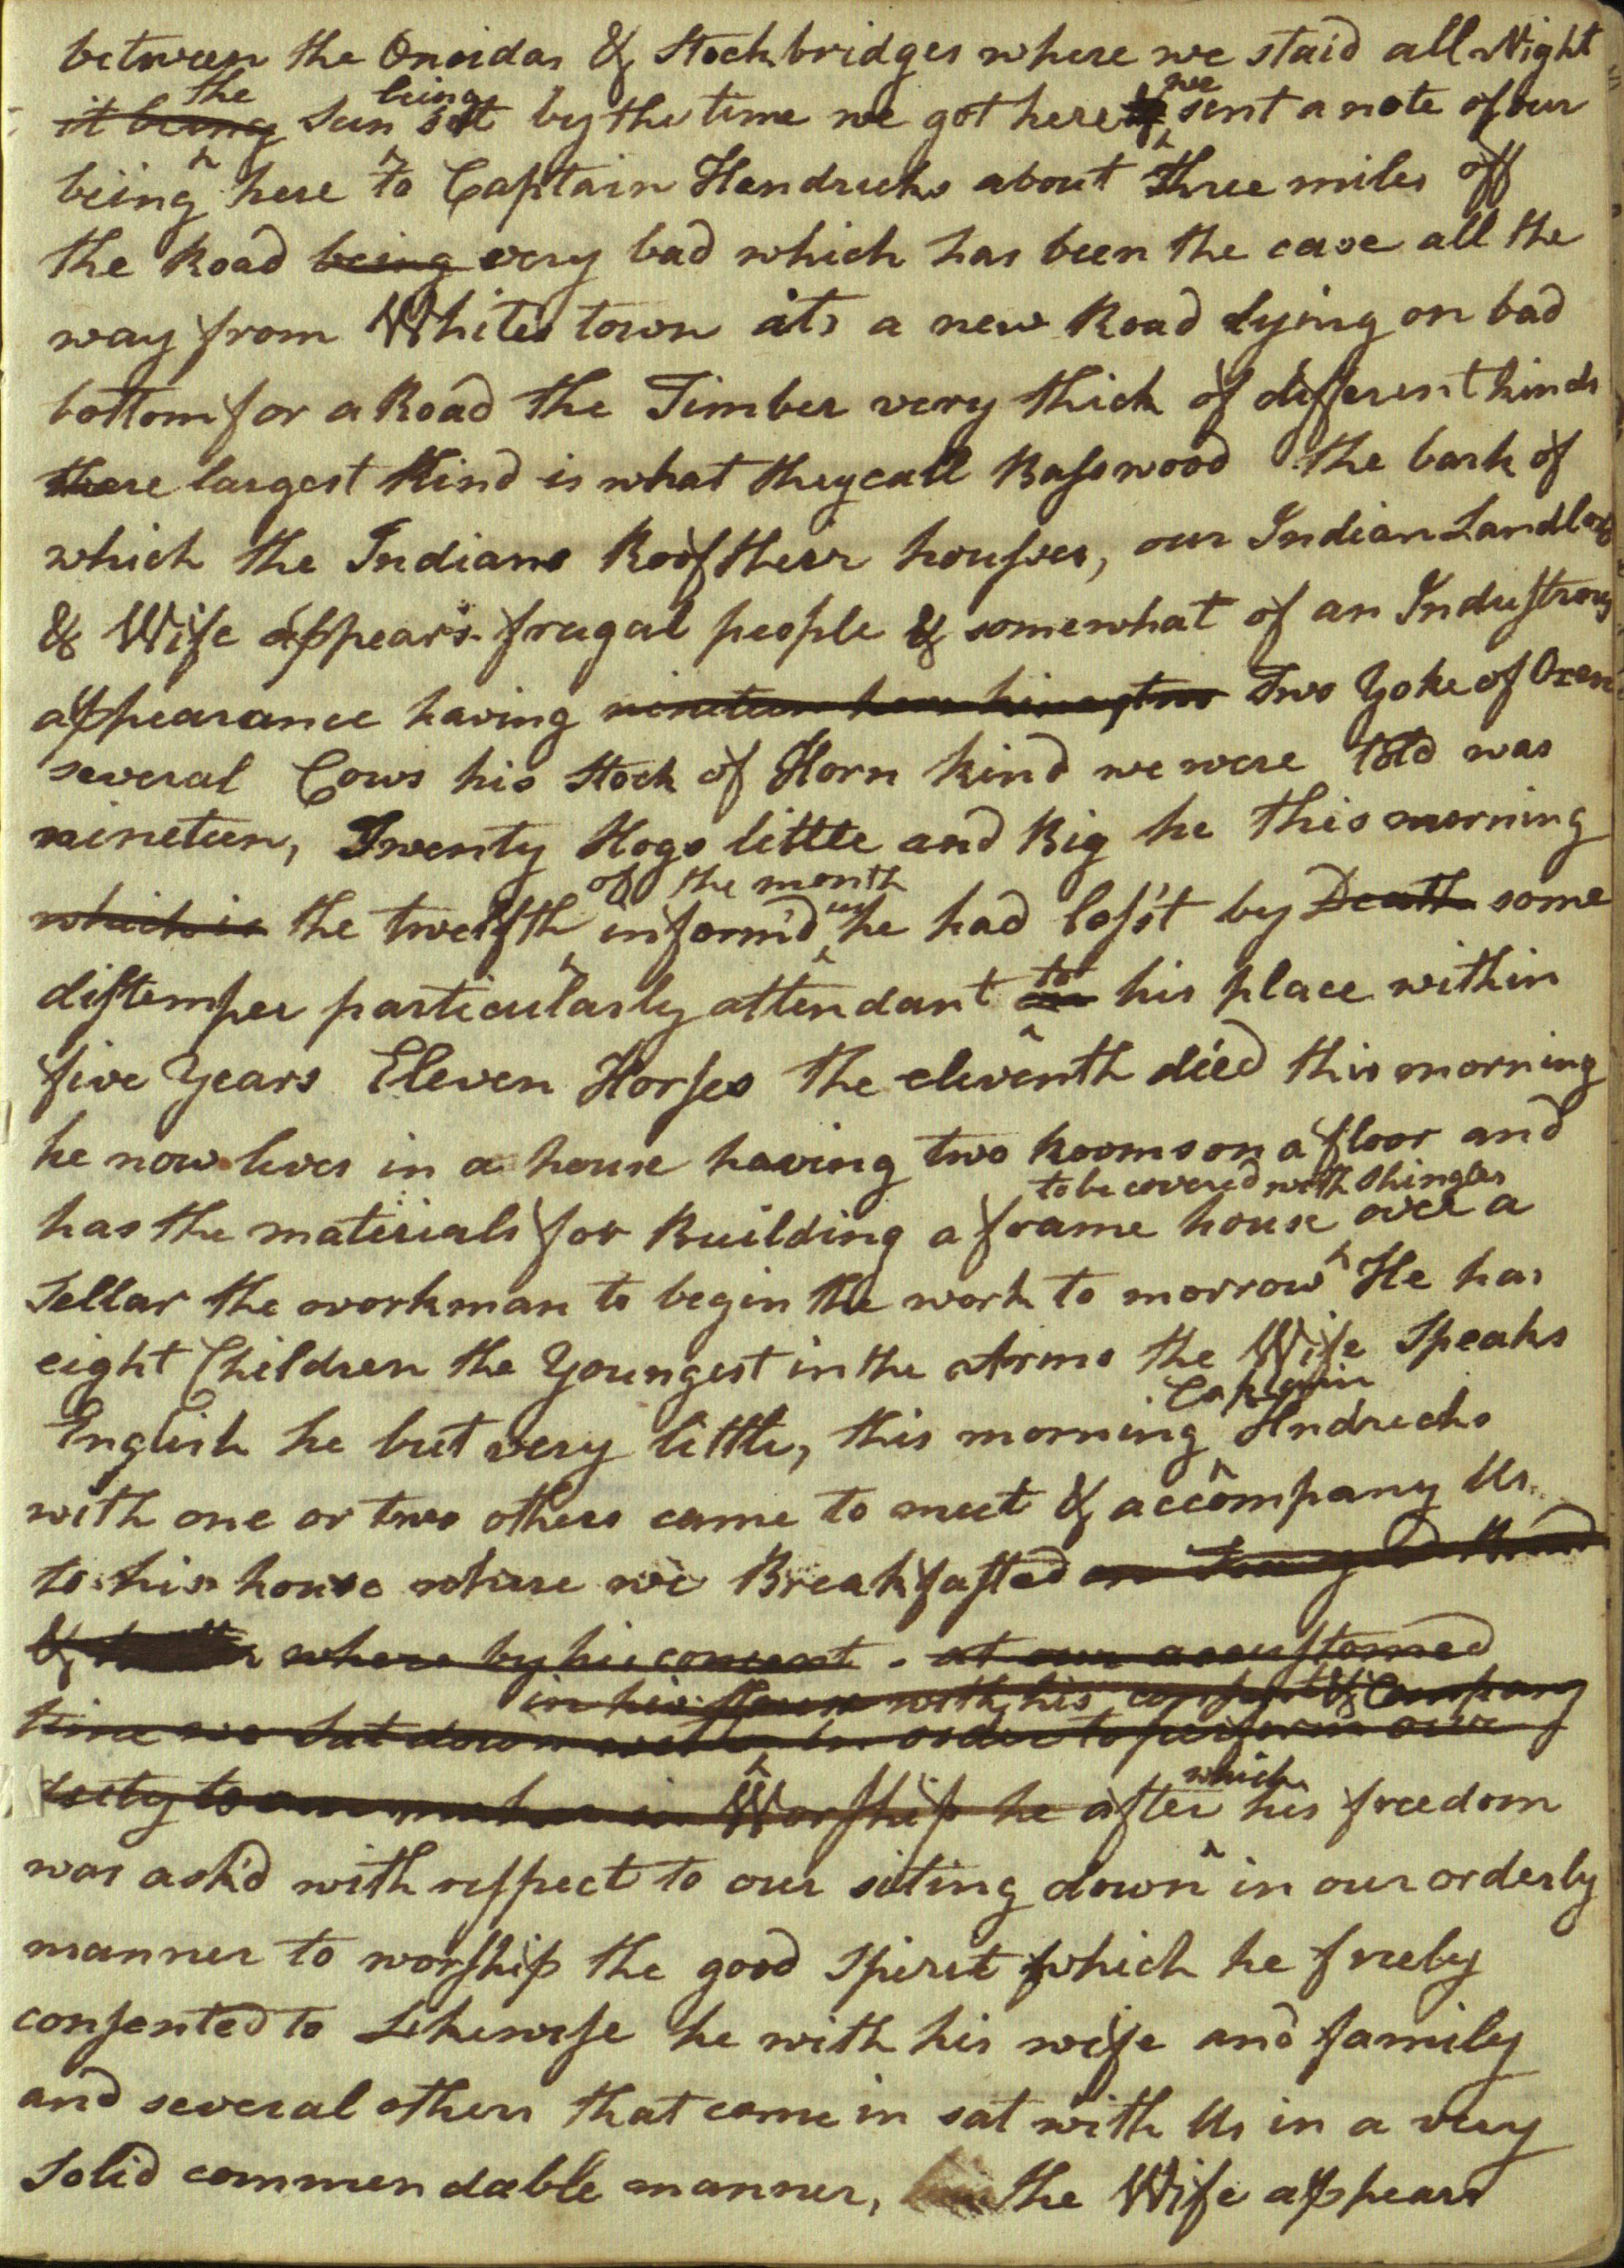 between the Oneidas & Stockbridges where we staid all Night
the being we
it being Sun set by the time we got here sent a note of our
being here to Captain Hendricks about three miles off
the Road being very bad which has been the case all the
way from Whites town its a new Road lying on bad
bottom for a Road the Timber very thick of different kinds
there largest Kind is what they call Basswood the bark of
which the Indians Roof their houses, our Indian Landlord
& Wife appears frugal people & somewhat of an Industrous
appearance having nineteen two Two Yoke of Oxen
several Cows his Stock of Horn kind we were told was
nineteen, Twenty Hogs little and Big he this morning
of the month us
which is the twelfth inform'd he had loss't by Death some
to
distemper particularly attendant on his place within
five Years Eleven Horses the eleventh died this morning
he now lives in a house having two Rooms on a floor and
to be covered with Shingles
has the materials for Building a frame house over a
Sellar the workman to begin the work to morrow He has
eight Children the Youngest in the Arms the Wife Speaks
Captain
English he but very little, this morning Hndricks
with one or two others came to meet & accompany Us
to his house where we Breakfasted
& where by his consent at our accustomed
in his House with his consent & Company
time we Sat down in order to perform our
duty to our maker in Worship he after his freedom
which
was ask'd with respect to our siting down in our orderly
manner to worship the good Spirit which he freely
consented to Likewise he with his wife and family
and several others that came in sat with Us in a very
Solid commendable manner, the Wife appears